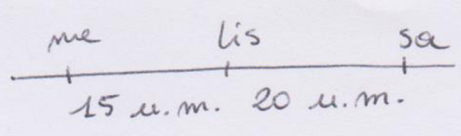 me lis sa
15 u.m. 20 u.m.